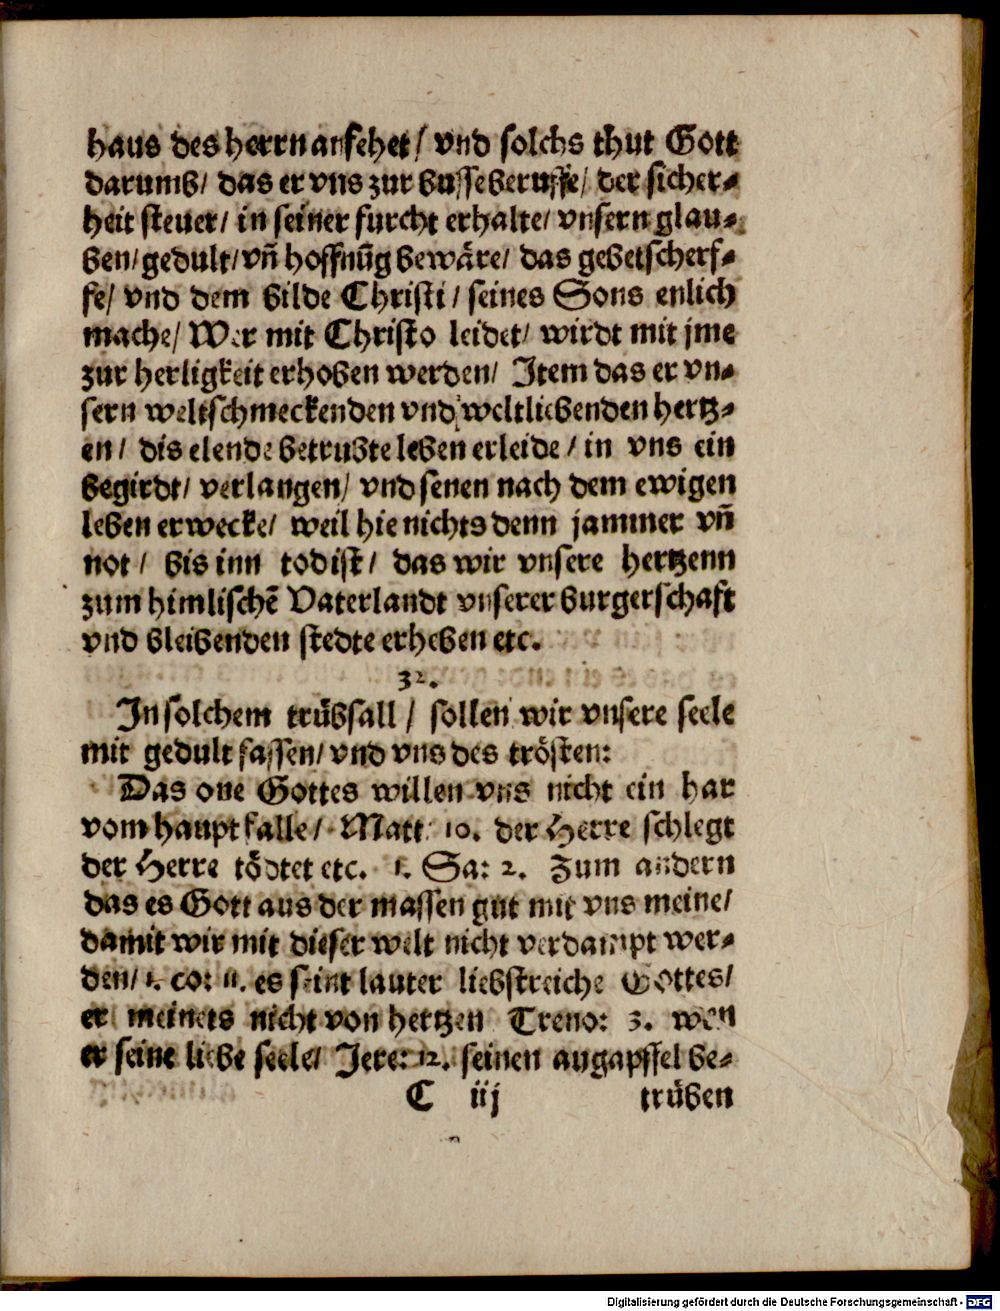 haus des herrn anfehet / vnd solchs thut Gott
darumb / das er vns zur busse beruffe / der sicher⸗
heit steuer / in seiner furcht erhalte / vnsern glau⸗
ben / gedult / vn̄ hoffnūg bewäre / das gebetscherf⸗
fe / vnd dem bilde Christi / seines Sons enlich
mache / Wer mit Christo leidet / wirdt mit jme
zur herligkeit erhoben werden / Item das er vn⸗
sern weltschmeckenden vnd weltliebenden hertz⸗
en / dis elende betrubte leben erleide / in vns ein
begirdt / verlangen / vnd senen nach dem ewigen
leben erwecke / weil hie nichts denn jammer vn̄
not / bis inn tod ist / das wir vnsere hertzenn
zum himlischē Vaterlandt vnserer burgerschaft
vnd bleibenden stedte erheben etc.
32.
In solchem trübsall / sollen wir vnsere seele
mit gedult fassen / vnd vns des trösten:
Das one Gottes willen vns nicht ein har
vom haupt falle / Matt. 10. der Herre schlegt
der Herre tödtet etc. 1. Sa: 2. Zum andern
das es Gott aus der massen gut mit vns meine /
damit wir mit dieser welt nicht verdampt wer⸗
den / 1. co: 11. es seint lauter liebstreiche Gottes /
er meinets nicht von hertzen Treno: 3. wen
er seine liebe seele / Jere: 12. seinen augapffel be⸗
C iij trüben
Digitalisierung gefördert durch die Deutsche Forschungsgemeinschaft - DFG